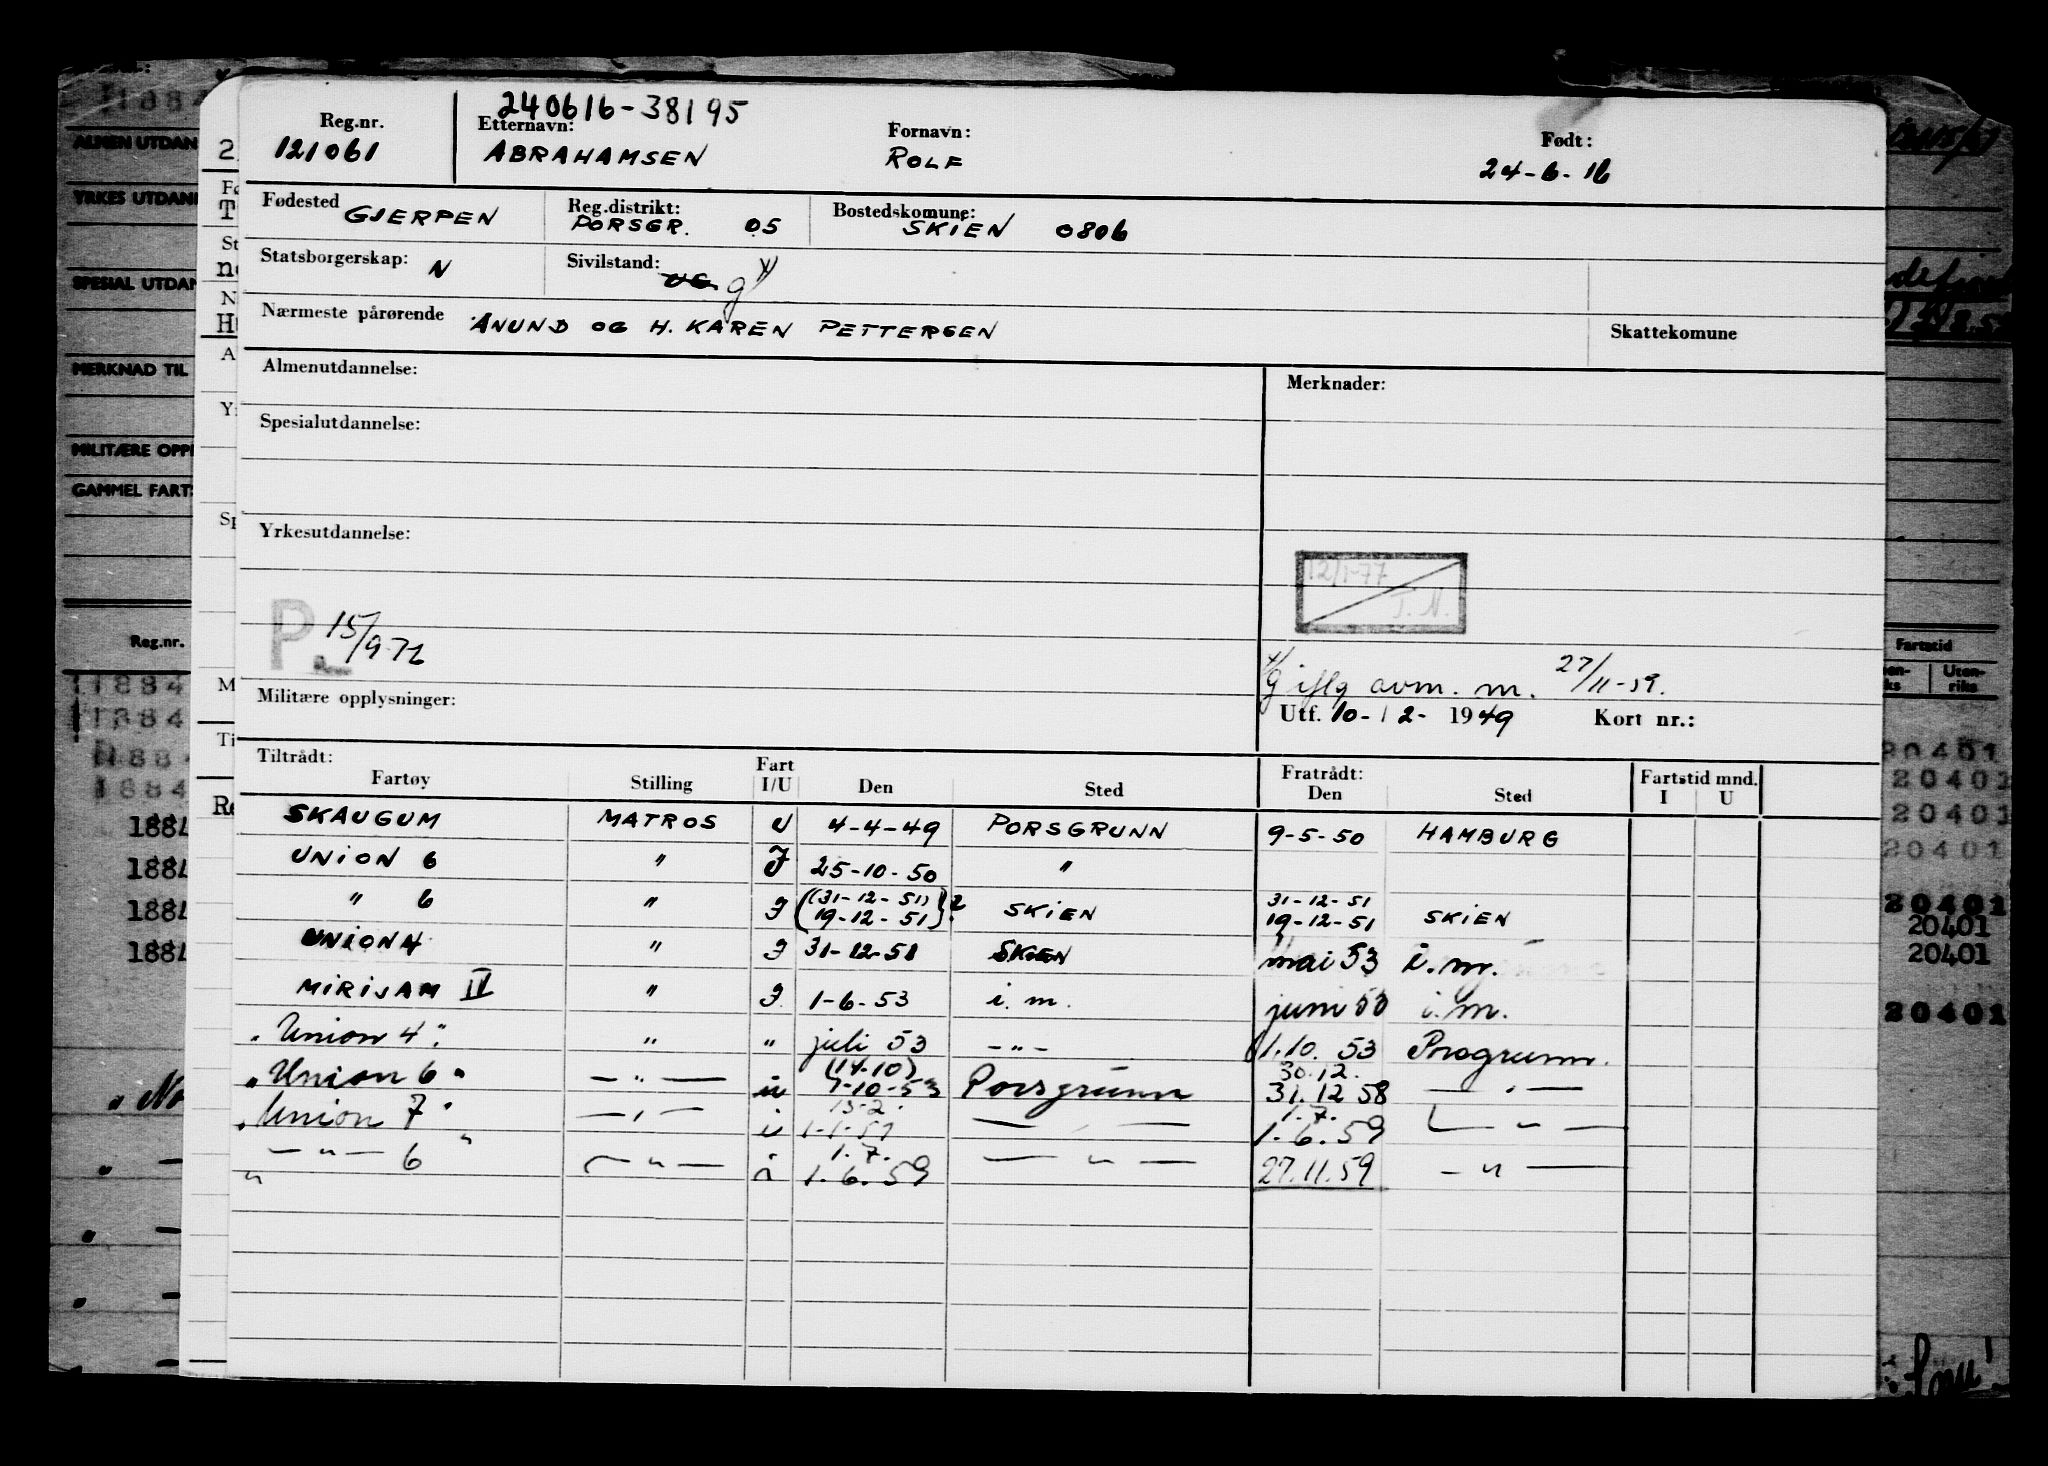 240616-38195
Reg.nr. Etternavn: Fornavn: Født:
121061 ABRAHAMSEN ROLF 24-6-16
Fødested GJERPEN Reg.distrikt: PORSGR. 05 Bostedskomune: SKIEN 0806
Statsborgerskap: N Sivilstand: UG g x/
Nærmeste pårørende ANUND OG H. KAREN PETTERSEN Skattekomune
Almenutdannelse: Merknader:
Spesialutdannelse:
Yrkesutdannelse:
12/1-77
T.N.
P 15/9 71
x/g iflg avm. m. 27/11-59.
Militære opplysninger: Utf. 10-12-1949 Kort nr.:
Tiltrådt: Fart Fratrådt: Fartstid mnd.
Fartøy Stilling I/U Den Sted Den Sted I U
SKAUGUM MATROS U 4-4-49 PORSGRUNN 9-5-50 HAMBURG
UNION 6 " I 25-10-50 "
" 6 " I ((31-12-51) 19-12-51)? SKIEN 31-12-51 19-12-51 SKIEN
UNION 4 " I 31-12-51 SKIEN mai 53 i.m.
MIRIJAM IV " I 1-6-53 i.m. juni 53 i.m.
"Union 4" " " juli 53 -"- 1.10.53 Porsgrunn.
"Union 6" -"- (14.10) 1-10-53 Porsgrunn 30.12. 31.12 58 -"-
"Union 7" -"- i 13-2. 1-1-59 -"- 1.7. 1.6.59 -"-
" -"- 6 " -"- i 1.7. 1.6.59 -"- 27.11.59 -"-
ALMEN UTDAN
YRKES UTDAN
SPESIAL UTDAN
MERKNAD TIL
MILITÆRE OPP
GAMMEL FARTS
Reg.nr.
Fartstid
Uten-
riks
20401
20401
20401
20401
20401
20401
20401
20401